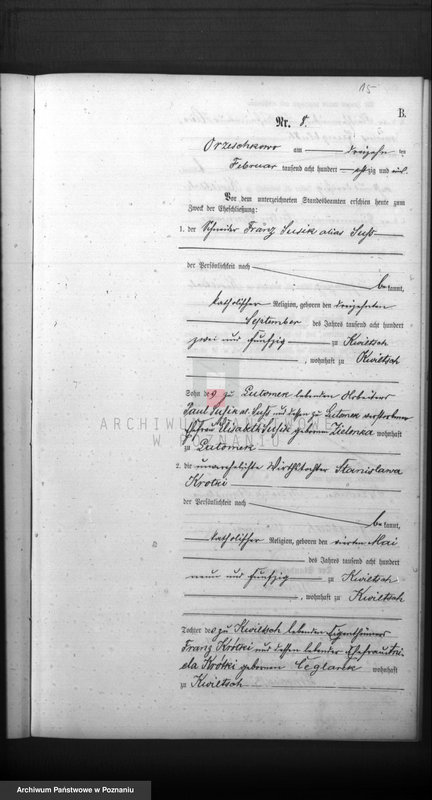 15
B.
Nr. 8.
Orzeschkowo am dreizehn ten
Februar tausend acht hundert achtzig und
Vor dem unterzeichneten Standesbeamten erschien heute zum
Zweck der Eheschließung:
1. der Schneider Franz Susik alias Suß
der Persönlichkeit nach
be kannt,
katholischer Religion, geboren den dreizehnten
September des Jahres tausend acht hundert
zwei und fünfzig zu Kwiltsch
, wohnhaft zu Kwiltsch
Sohn des zu Lutomek lebenden Arbeiters
Paul Susik al. Suß und dessen zu Lutomek verstorbenen
Ehefrau geborenen Zielonka wohnhaft
zu Lutomek
ARCHIWUM PAŃSTWOWE
W POZNANIU
2. die unverehelichte Wirthstochter Stanislawa
Krotki
der Persönlichkeit nach
be kannt,
katholischer Religion, geboren den vierten Mai
des Jahres tausend acht hundert
neun und fünfzig zu Kwiltsch
, wohnhaft zu Kwiltsch
Tochter des zu Kwiltsch lebenden Eigenthümers
Franz Krotki und dessen lebender Ehefrau
Krotki geborenen Ceglarek wohnhaft
zu Kwiltsch
Archiwum Państwowe w Poznaniu